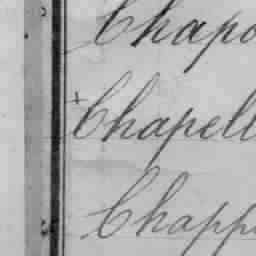 Chapo
Chapell
Chapp